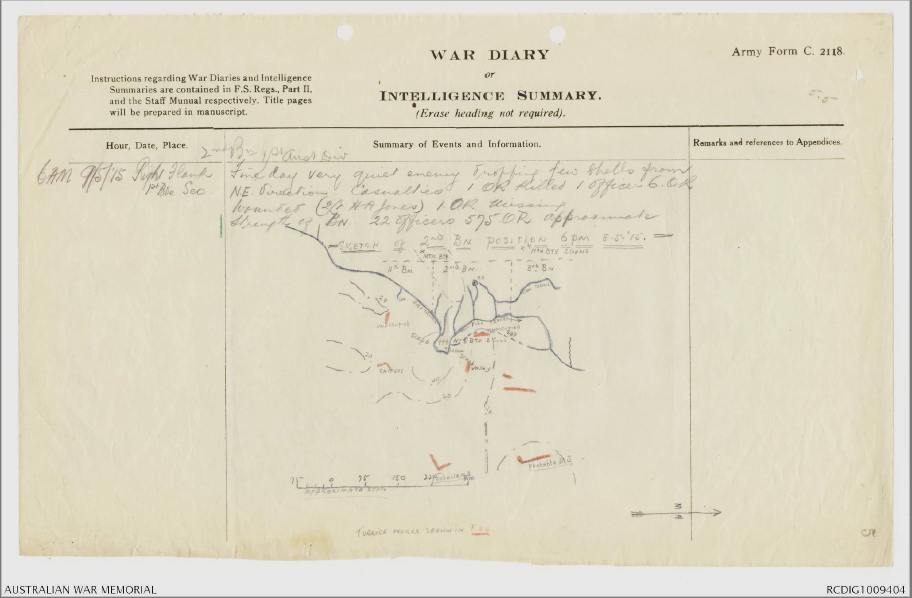 WAR DIARY
or
INTELLIGENCE SUMMARY.
(Erase heading not required).
Army Form C. 2118.
Instructions regarding War Diaries and Intelligence
Summaries are contained in F.S. Regs., Part II,
and the Staff Munual respectively. Title pages
will be prepared in manuscript.
Hour, Date, Place.
Summary of Events and Information.
Remarks and references to Appendices.
2nd Bn 1st Aust Div
6AM 9/5/15 Right Flank
1st Bde Sec
Fine day very quiet enemy dropping few shells from
NE. Direction, Casualties 1 OR Killed 1 Officer 6 OR
Wounded (2/Lt H A Jones) 1 OR Missing
Strength of BN. 22 Officers 575 OR approximate
SKETCH of 2ND BN POSITION 6PM 8-5-15.
MTN BTY
4TH BN. 2ND BN. 3RD BN.
VALLEY
75 0 75 150 225
APPROXIMATE SCALE
Probable M.G.
TURKISH WORKS SHOWN IN RED
AUSTRALIAN WAR MEMORIAL
RCDIG1009404